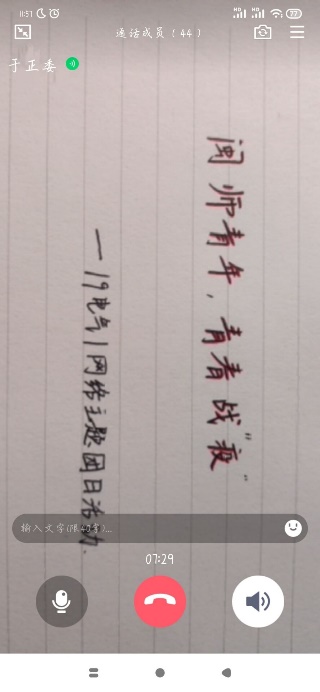 11:51
HD HD 27
通话成员（44）
于正委
闽师青年，青春战“疫”
—19电气1网络主题团日活动.
输入文字(限40字)...
07:29